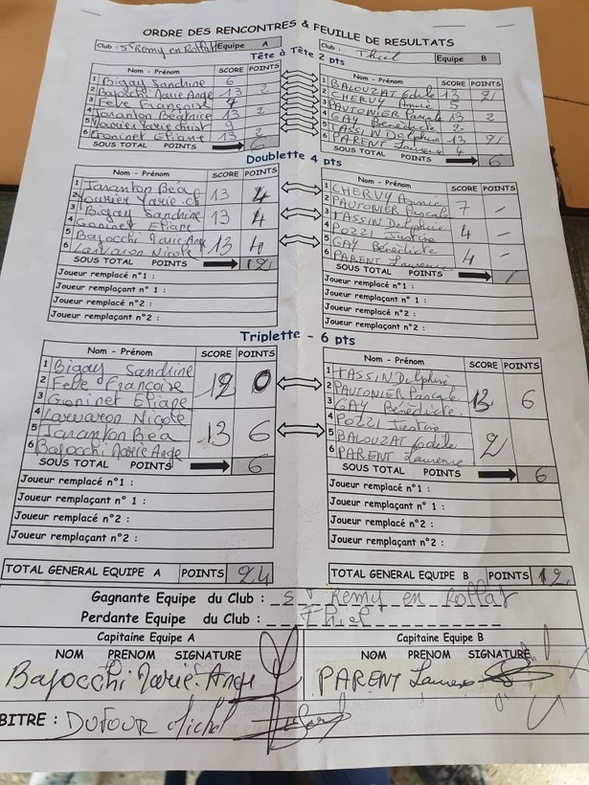 ORDRE DES RENCONTRES & FEUILLE DE RESULTATS
Club : St Remy en Rollat Equipe A Club : Thiel Equipe B
Tête à Tête 2 pts
Nom - Prénom SCORE POINTS Nom - Prénom SCORE POINTS
1 Bigay Sandrine 6 1 BALOUZAT Odile 13 2
2 Bajocchi Marie Ange 13 2 2 CHERVY Annie 5
3 Feve Françoise 7 3 PAUTONIER Pascale 13 2
4 Taranton Béatrice 13 2 4 GAY Bénédicte 2
5 9 5 TASSIN Delphine 13 2
6 Goninet Eliane 13 2 6 PARENT Laurence 4
SOUS TOTAL POINTS 6 SOUS TOTAL POINTS 6
Doublette 4 pts
Nom - Prénom SCORE POINTS Nom - Prénom SCORE POINTS
1 Taranton Bea 13 4 1 CHERVY Annie 7 -
2 2 PAUTONIER Pascale
3 Bigay Sandrine 13 4 3 TASSIN Delphine 4 -
4 Goninet Eliane 4 POZZI Justine
5 Bajocchi Marie Ange 13 4 5 GAY Bénédicte 4 -
6 Larvaron Nicole 6 PARENT Laurence
SOUS TOTAL POINTS 12 SOUS TOTAL POINTS /
Joueur remplacé n°1 : Joueur remplacé n°1 :
Joueur remplaçant n° 1 : Joueur remplaçant n° 1 :
Joueur remplacé n°2 : Joueur remplacé n°2 :
Joueur remplaçant n°2 : Joueur remplaçant n°2 :
Triplette - 6 pts
Nom - Prénom SCORE POINTS Nom - Prénom SCORE POINTS
1 Bigay Sandrine 12 0 1 TASSIN Delphine 13 6
2 Feve Françoise 2 PAUTONIER Pascale
3 Goninet Eliane 3 GAY Bénédicte
4 Larvaron Nicole 13 6 4 POZZI Justine 2
5 Taranton Bea 5 BALOUZAT Odile
6 Bajocchi Marie Ange 6 PARENT Laurence
SOUS TOTAL POINTS 6 SOUS TOTAL POINTS 6
Joueur remplacé n°1 : Joueur remplacé n°1 :
Joueur remplaçant n° 1 : Joueur remplaçant n° 1 :
Joueur remplacé n°2 : Joueur remplacé n°2 :
Joueur remplaçant n°2 : Joueur remplaçant n°2 :
TOTAL GENERAL EQUIPE A POINTS 24 TOTAL GENERAL EQUIPE B POINTS 12
Gagnante Equipe du Club : St Remy en Rollat
Perdante Equipe du Club : Thiel
Capitaine Equipe A Capitaine Equipe B
NOM PRENOM SIGNATURE NOM PRENOM SIGNATURE
Bajocchi Marie Ange PARENT Laurence
BITRE : DUFOUR Michel